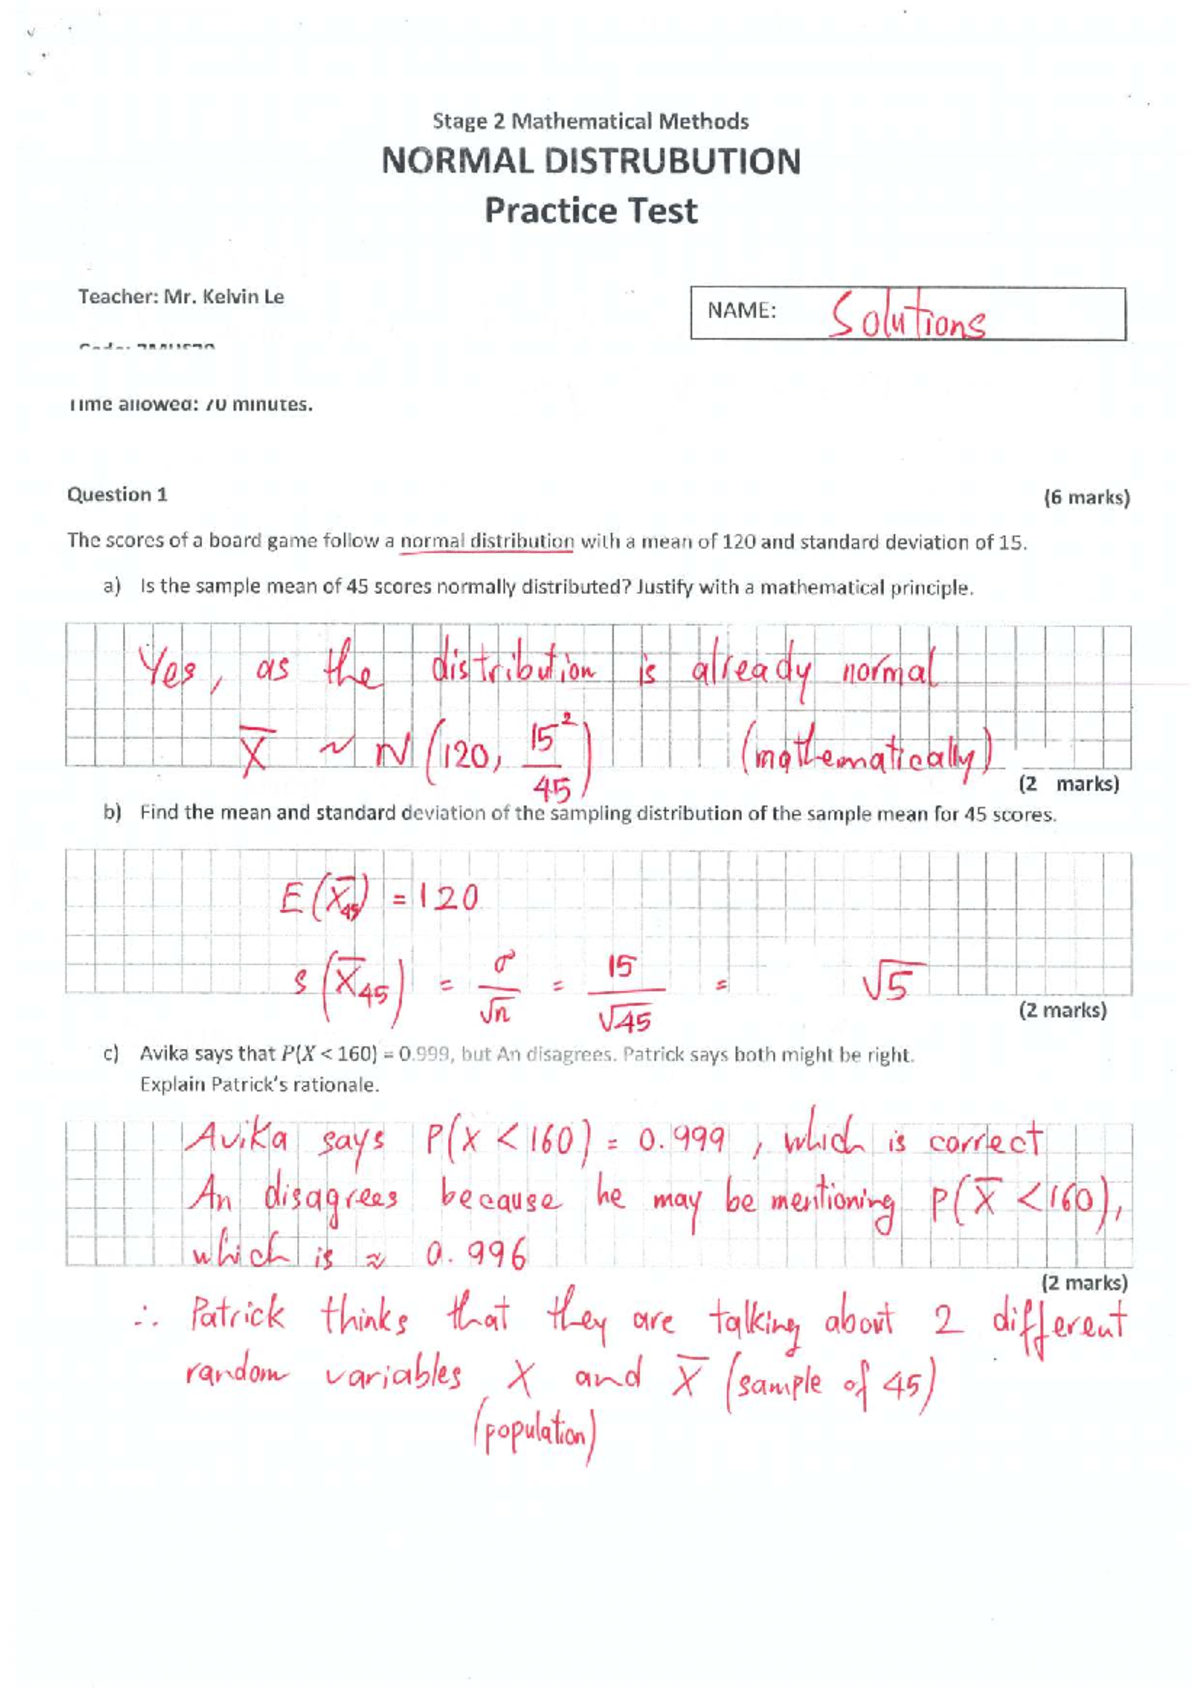 Stage 2 Mathematical Methods
NORMAL DISTRUBUTION
Practice Test
Teacher: Mr. Kelvin Le
NAME: Solutions
Time allowed: 70 minutes.
Question 1 (6 marks)
The scores of a board game follow a normal distribution with a mean of 120 and standard deviation of 15.
a) Is the sample mean of 45 scores normally distributed? Justify with a mathematical principle.
Yes, as the distribution is already normal
X̄ ~ N(120, 15²/45) (mathematically)
(2 marks)
b) Find the mean and standard deviation of the sampling distribution of the sample mean for 45 scores.
E(X̄₄₅) = 120
s(X̄₄₅) = σ/√n = 15/√45 = √5
(2 marks)
c) Avika says that P(X < 160) = 0.999, but An disagrees. Patrick says both might be right.
Explain Patrick's rationale.
Avika says P(X < 160) = 0.999, which is correct
An disagrees because he may be mentioning P(X̄ < 160),
which is ≈ 0.996
(2 marks)
∴ Patrick thinks that they are talking about 2 different
random variables X and X̄ (sample of 45)
(population)